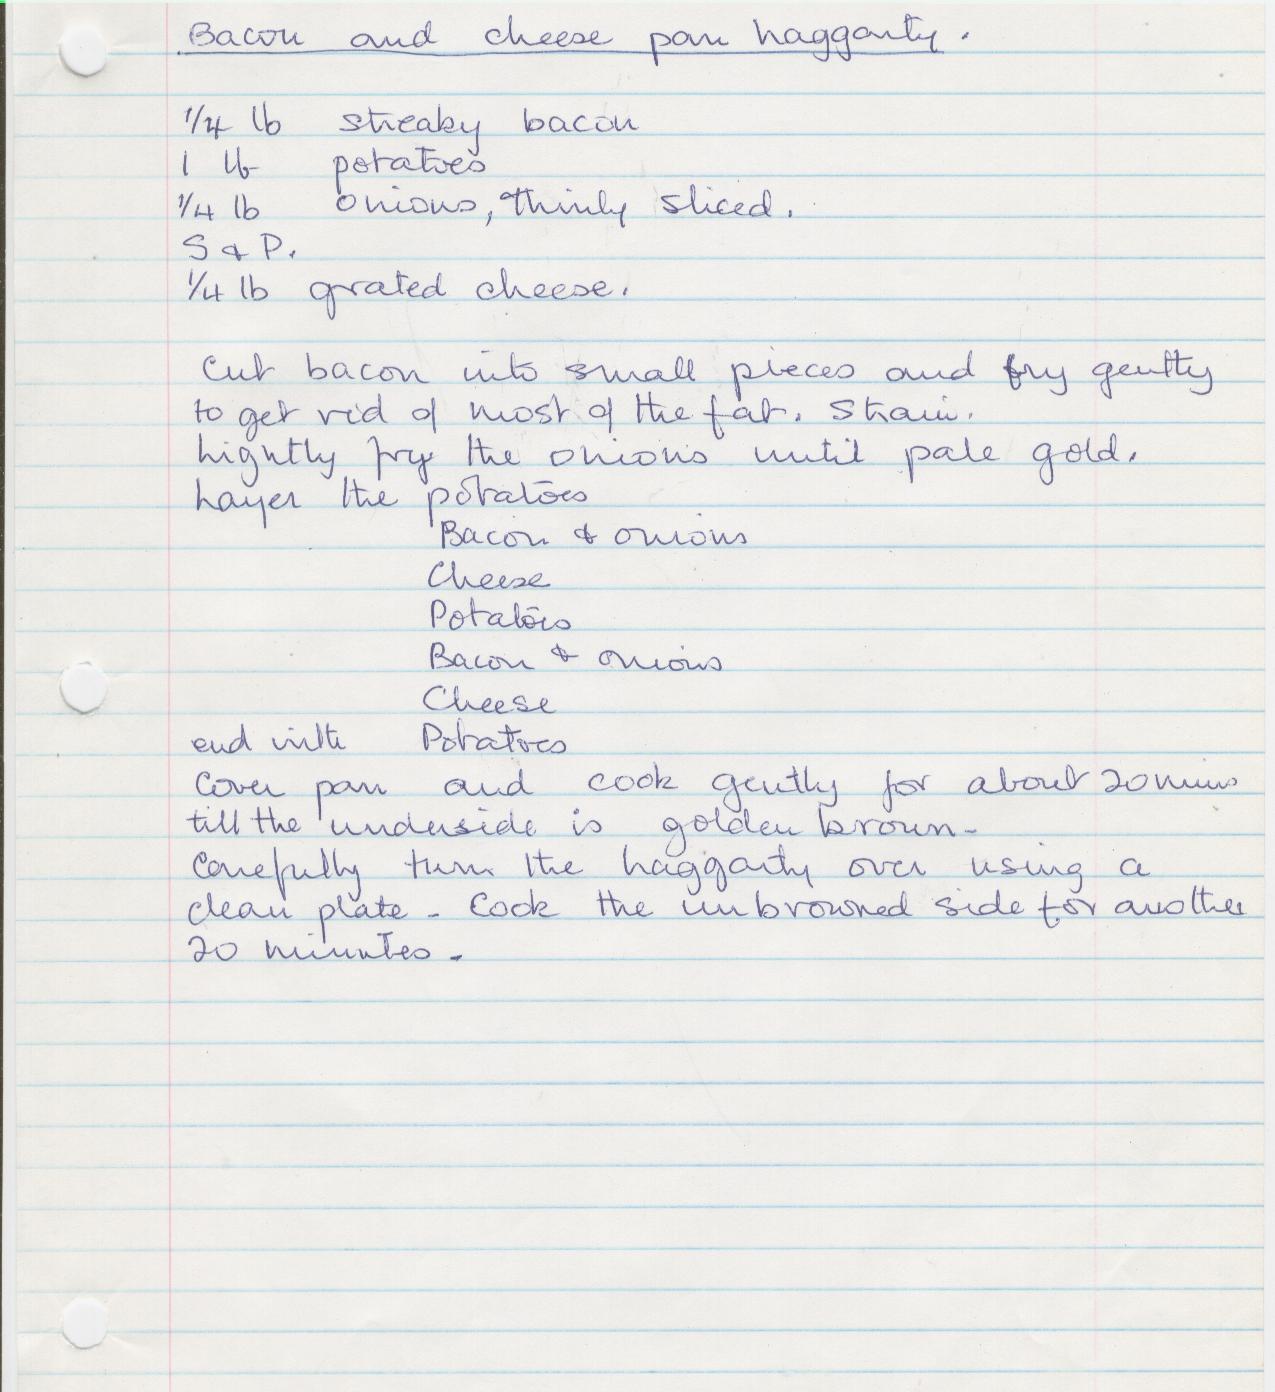 Bacon and cheese pan haggarty.
1/4 lb streaky bacon
1 lb potatoes
1/4 lb onions, thinly sliced.
S & P.
1/4 lb grated cheese.
Cut bacon into small pieces and fry gently
to get rid of most of the fat. Strain.
Lightly fry the onions until pale gold.
Layer the potatoes
Bacon & onions
Cheese
Potatoes
Bacon & onions
Cheese
end with Potatoes
Cover pan and cook gently for about 20 mins
till the underside is golden brown -
Carefully turn the haggarty over using a
clean plate - Cook the unbrowned side for another
20 minutes -